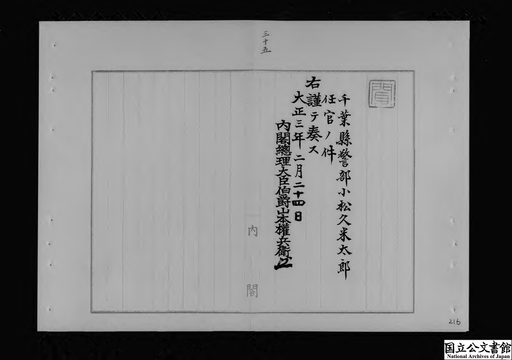 三十五
聞
千葉縣警部小松久米太郎
任官ノ件
右謹テ奏ス
大正三年二月二十四日
內閣總理大臣伯爵山本權兵衞
內閣
216
国立公文書館
National Archives of Japan